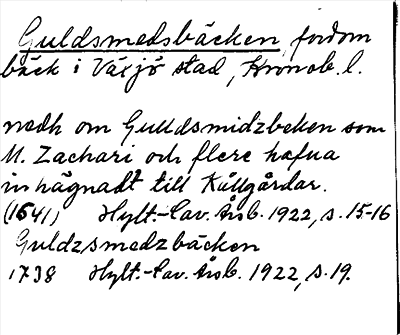 Guldsmedsbäcken, fordom
bäck i Växjö stad, Kronob. l.
nedh om Gulldsmidzbeken som
M. Zachari och flere hafua
inhägnadt till Kållgårdar.
(1641) Hylt.-Cav. Årsb. 1922, s. 15-16
Guldzsmedzbäcken
1738 Hylt.-Cav. Årsb. 1922, s. 19.